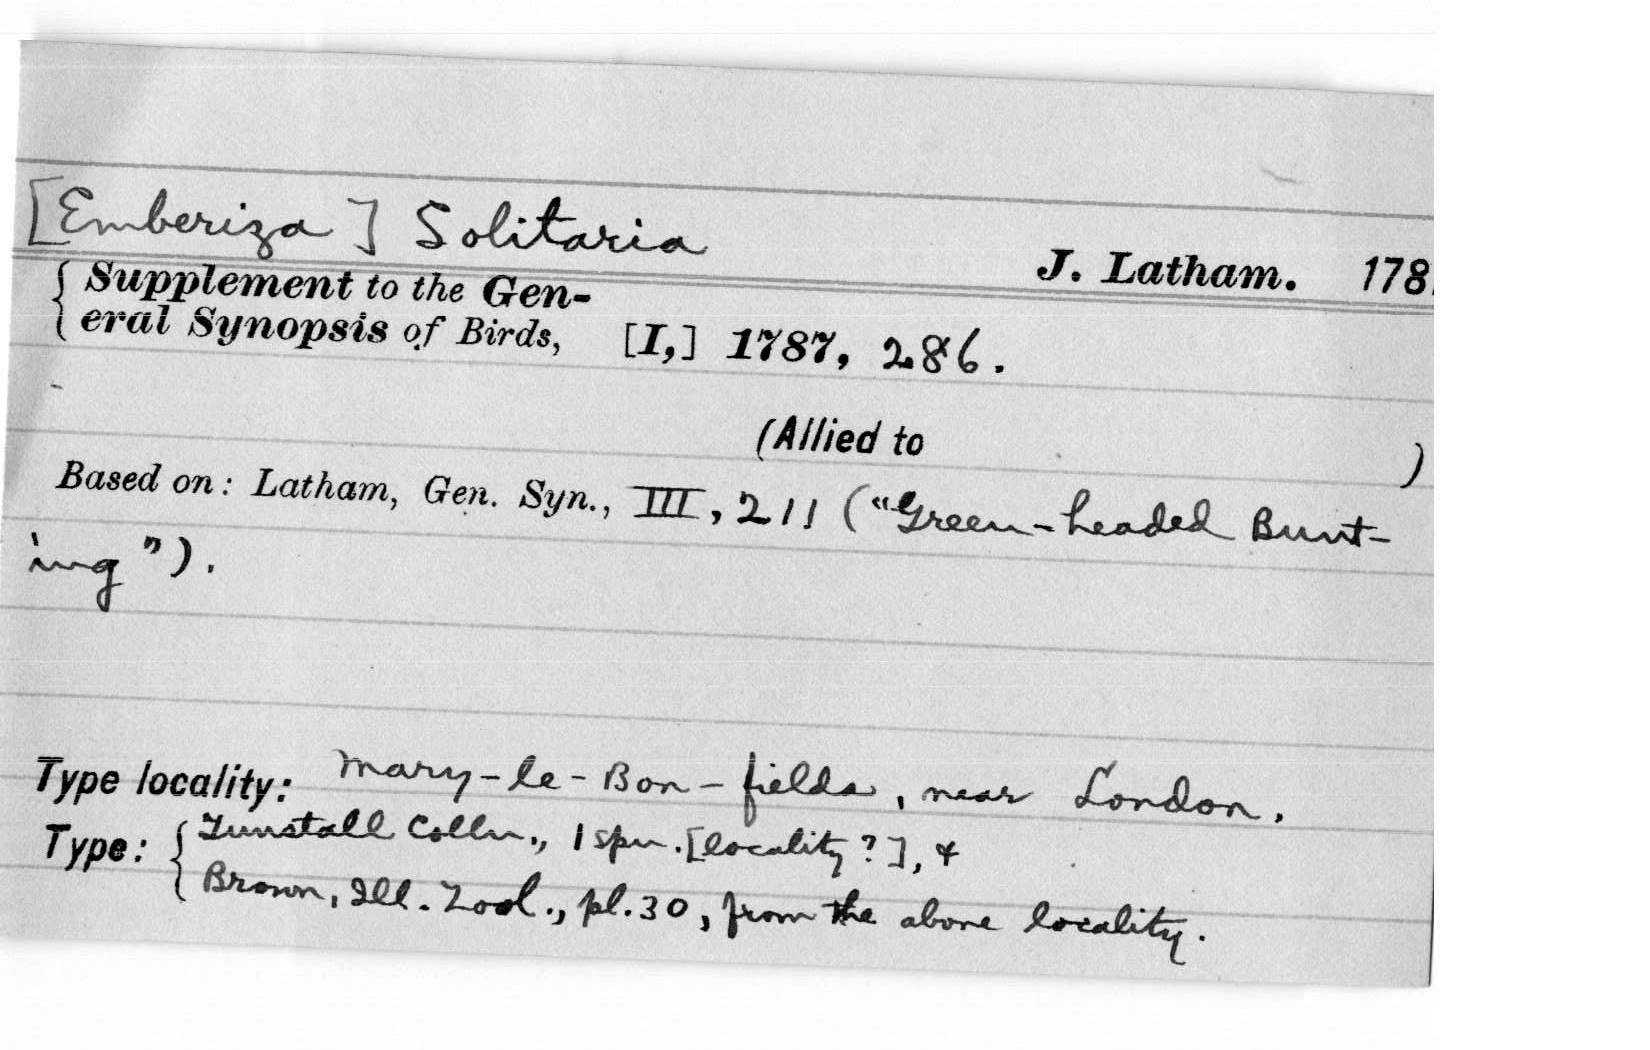 [Emberiza] Solitaria
J. Latham. 178
Supplement to the Gen-
eral Synopsis of Birds, [I,] 1787, 286.
(Allied to )
Based on: Latham, Gen. Syn., III, 211 ("Green-headed Bunt-
ing").
Type locality: Mary-le-Bon-fields, near London.
Type: Tunstall Colln., 1 spn. [locality?], &
Brown, Ill. Zool., pl. 30, from the above locality.